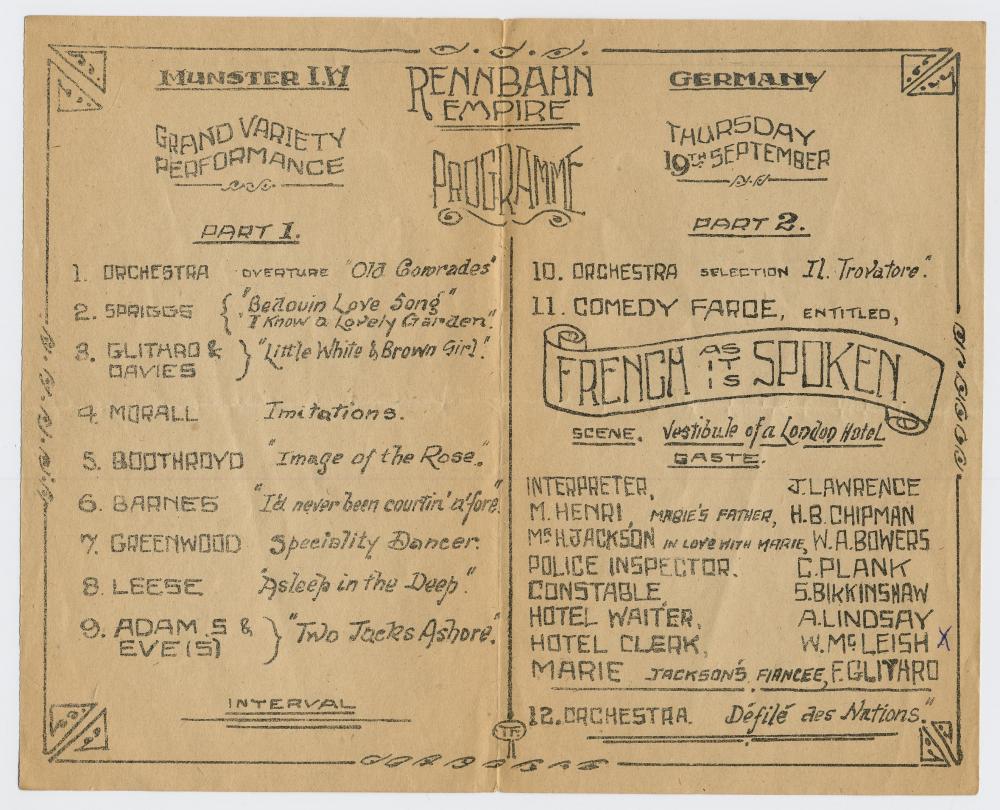 MUNSTER I.W
RENNBAHN
EMPIRE
GERMANY
GRAND VARIETY
PERFORMANCE
PROGRAMME
THURSDAY
19TH SEPTEMBER
PART 1.
1. ORCHESTRA OVERTURE "Old Comrades"
2. SPRIGGS { "Bedouin Love Song"
"I Know a Lovely Garden".
3. GLITHRO &
DAVIES } "Little White & Brown Girl".
4. MORALL Imitations.
5. BOOTHROYD "Image of the Rose".
6. BARNES "I'd never been courtin' a'fore"
7. GREENWOOD Speciality Dancer.
8. LEESE "Asleep in the Deep".
9. ADAM S &
EVE(S) } "Two Jacks Ashore".
INTERVAL
PART 2.
10. ORCHESTRA SELECTION Il. Trovatore".
11. COMEDY FARCE, ENTITLED,
FRENCH AS IT IS SPOKEN.
SCENE. Vestibule of a London Hotel
CASTE.
INTERPRETER, J. LAWRENCE
M. HENRI, MARIE'S FATHER, H.B. CHIPMAN
MR H. JACKSON IN LOVE WITH MARIE, W.A. BOWERS
POLICE INSPECTOR. C. PLANK
CONSTABLE S. BIRKINSHAW
HOTEL WAITER, A. LINDSAY
HOTEL CLERK, W. McLEISH X
MARIE JACKSON'S FIANCEE, F. GLITHRO
12. ORCHESTRA. Défilé des Nations."